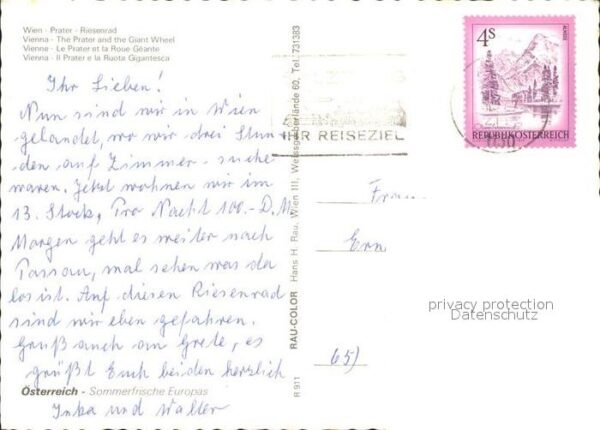 Wien - Prater - Riesenrad
Vienna - The Prater and the Giant Wheel
Vienne - Le Prater et la Roue Géante
Vienna - Il Prater e la Ruote Gigantesca
Ihr Lieben!
Nun sind wir in Wien
gelandet, wo wir drei Stun
den auf Zimmer-suche
waren. Jetzt wohnen wir im
13. Stock, Pro Nacht 100.- D.M.
Morgen geht es weiter nach
Passau, mal sehen was da
los ist. Auf diesen Riesenrad
sind wir eben gefahren.
Gruß auch an Grete, es
grüßt Euch beiden herzlich
Österreich - Sommerfrische Europas
Inka und Walter
R 911 RAU-COLOR Hans H. Rau, Wien III, Weissgerberlände 60, Tel. 731383
IHR REISEZIEL
4S
ALMSEE
REPUBLIK ÖSTERREICH
Frau
Ern
65)
privacy protection
Datenschutz